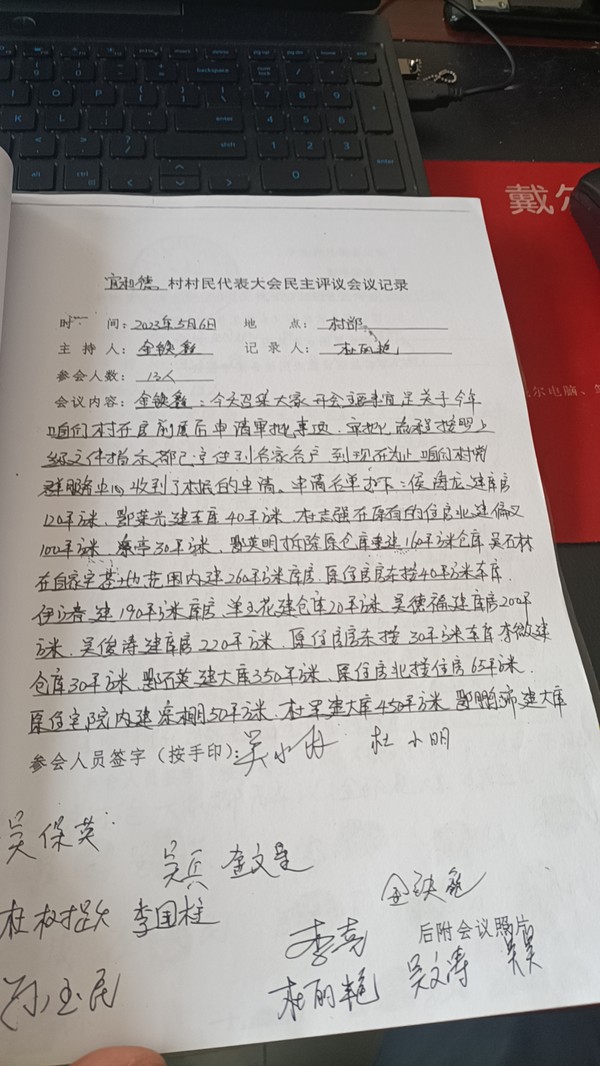 戴尔
尔电脑、
宜和德 村村民代表大会民主评议会议记录
时 间：2023年5月6日 地 点：村部
主 持 人：金铁鑫 记 录 人：杜丽艳
参会人数：13人
会议内容：金铁鑫：今天召集大家开会主要事宜是关于今年
咱们村在房前屋后申请审批事项，审批流程按照上
级文件指示都已宣传到各家各户 到现在为止咱们村
群 收到了村民的申请。申请名单如下：侯 龙建库房
120平方米，鄂荣光建车库40平方米，杜志强在原有的住房北建偏
100平方米， 亭30平方米，鄂英明拆除原仓库重建160平方米仓库 吴石林
在自家宅基地范围内建260平方米库房，原住房东接40平方米车库
伊 春建190平方米库房，单玉花建仓库20平方米 吴德福建库房200平
方米，吴俊涛建库房220平方米，原住房东接30平方米车库 李微建
仓库30平方米，鄂石英建大库350平方米，原住房北接住房65平方米
原住宅院内建凉棚50平方米，杜军建大库450平方米 鄂鹏 建大库
参会人员签字（按手印）： 杜小明
吴保英
吴兵 查文星
金铁鑫
杜树 李国柱
李 后附会议照片
孙玉民 杜丽艳 吴文涛 吴昊